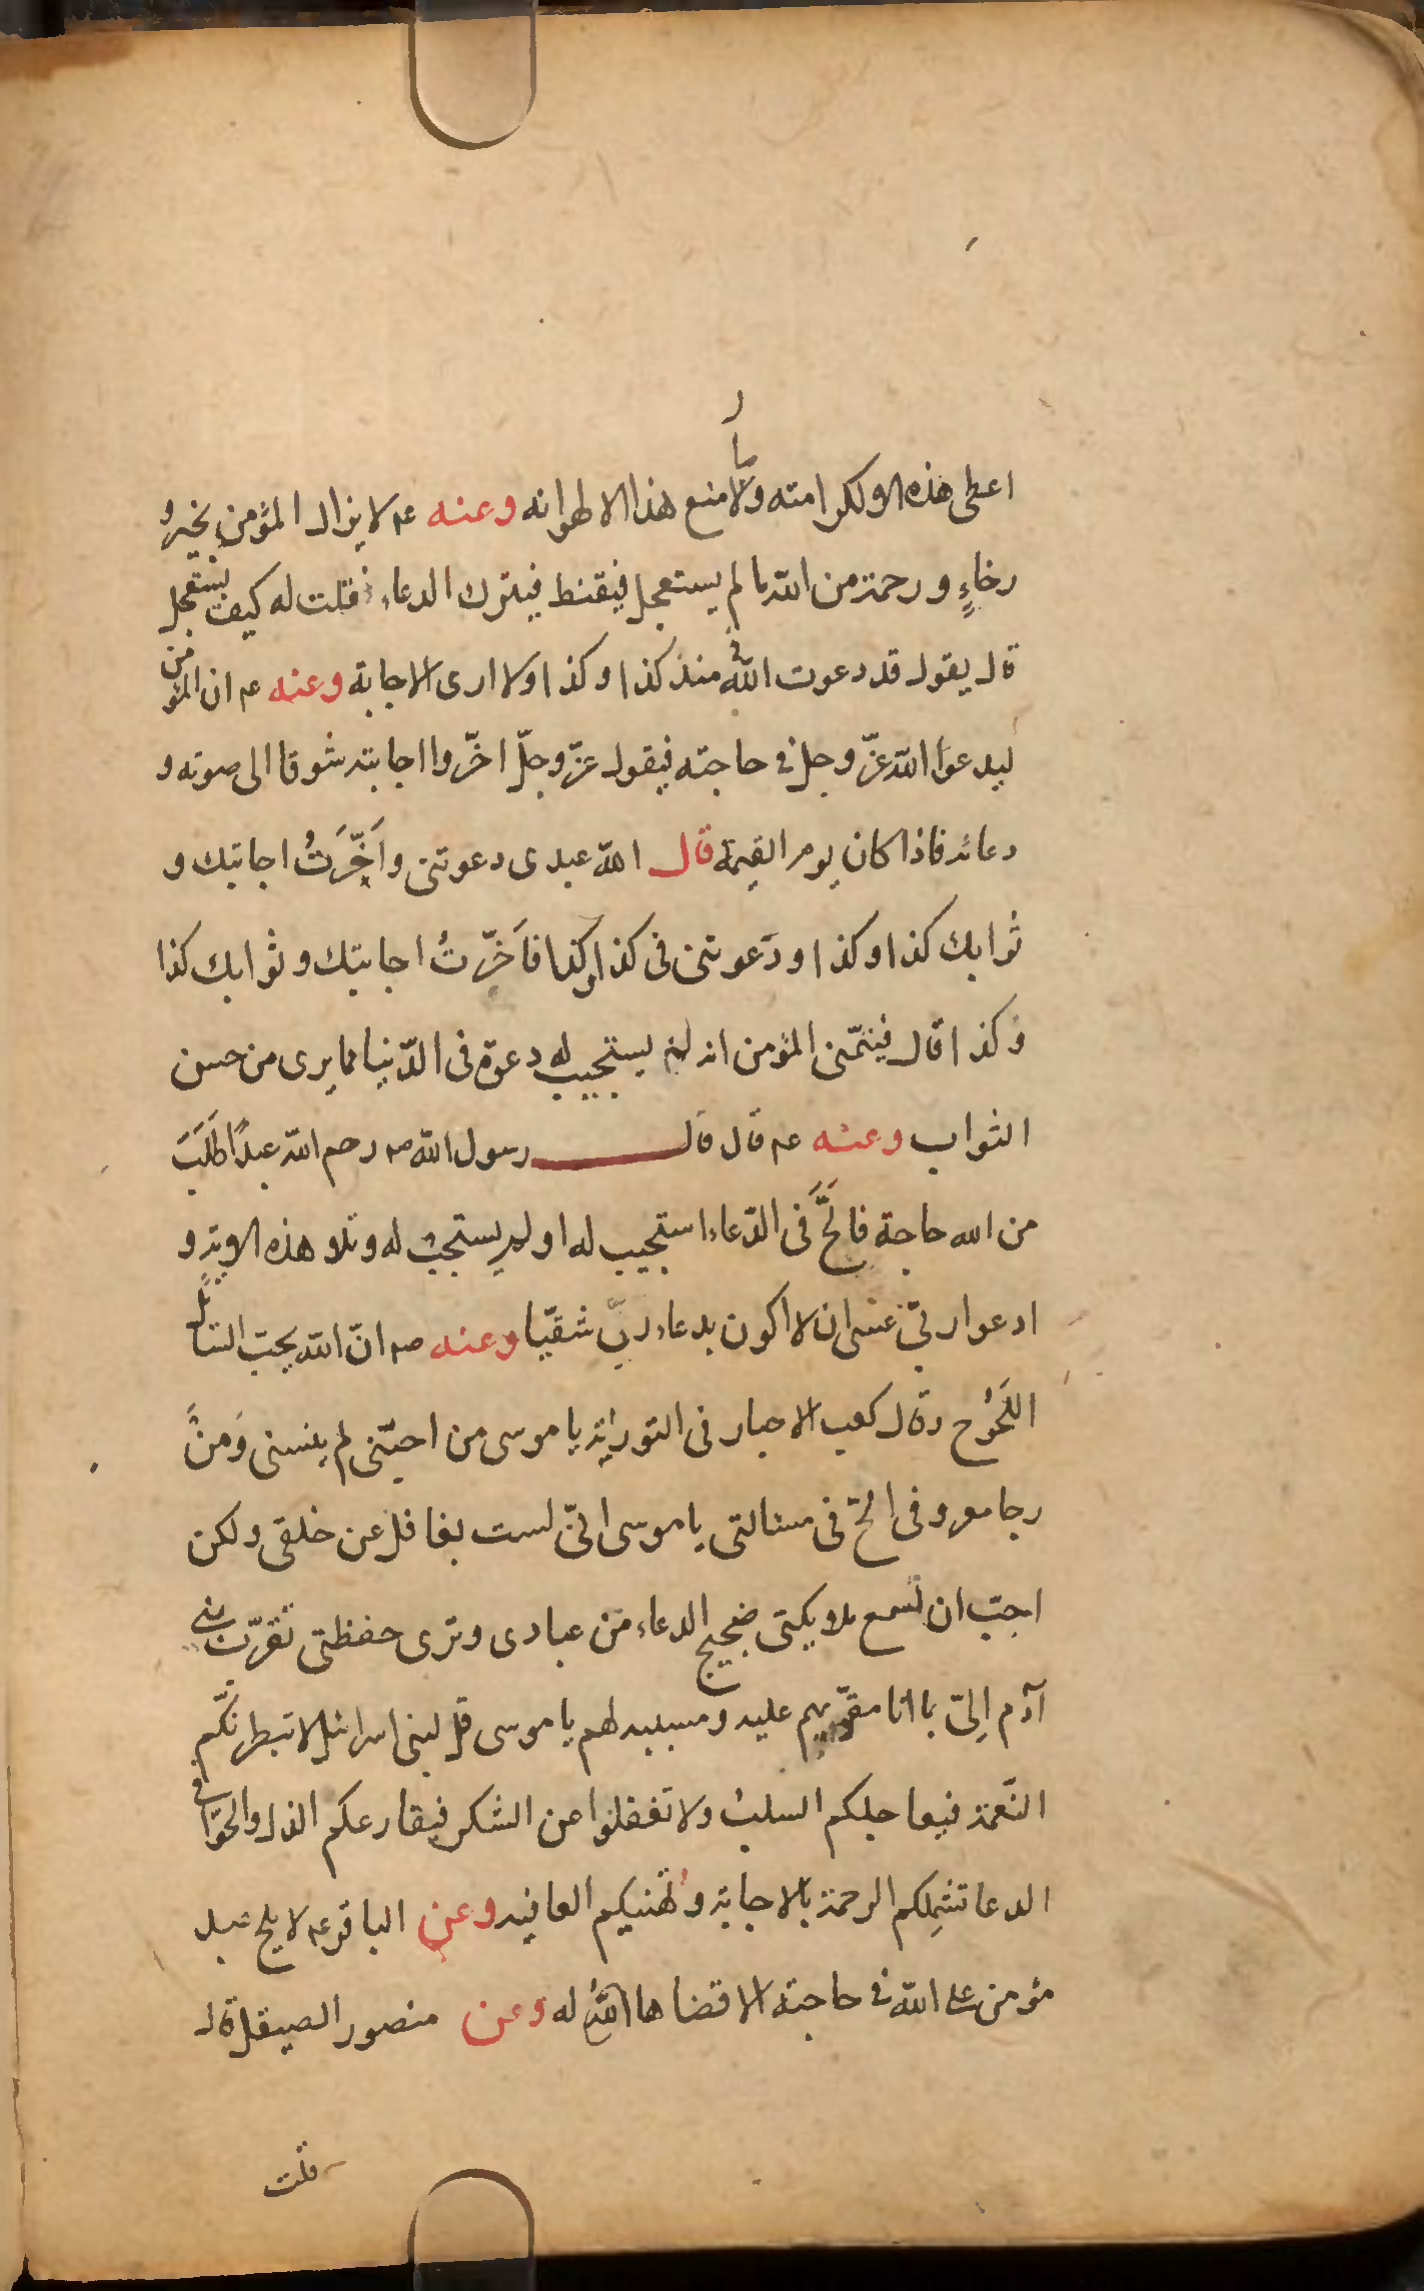 اعطى هذه الا ولكرامته ولا ما منع هذا الا لهوانه وعنه عم لا يزال المؤمن بخير و
رخاءٍ ورحمة من الله ما لم يستعجل فيقنط فيترك الدعاء قلت له كيف يستعجل
قال يقول قد دعوت الله منذ كذا وكذا ولا ارى الاجابة وعنه عم ان المؤمن
ليدعوا الله عزّ وجل في حاجته فيقول عزّ وجلّ اخّروا اجابته شوقا الى صوته و
دعائه فاذا كان يوم القيمة قال الله عبدى دعوتنى واَخّرَتُ اجابتك و
ثوابك كذا وكذا ودَعوتنى فى كذا وكذا فاَخّرتُ اجابتك وثوابك كذا
وكذا قال فيتمّنى المؤمن انه لم يستجيب له دعوة فى الدّنيا مما يرى من حسن
الثواب وعنه عم قال قال رسول الله صم رحم الله عبدًا طَلَبَ
من الله حاجة فاَلَحَّ فى الدّعاء استجيب له او لم يستجب له وتلا هذه الاية و
ادعوا ربّى عسى ان لا اكون بدعاء ربّى شقيّا وعنه صم انّ الله يحبّ السائل
اللَحُوْح وقال كعب الاحبار فى التوراية يا موسى من احبّنى لم ينسنى وَمنْ
رجا معروفى الحّ فى مسئالتى يا موسى انّى لست بغافل عن خلقى ولكن
احبّ ان تسمع ملايكتى ضجيج الدعاء من عبادى وترى حفظتى تقرّب بنى
آدم اِلىّ بما انا مقوّيهم عليه ومسببه لهم يا موسى قل لبنى اسرائل لا تبطرنّكم
النّعمة فيعاجلكم السلب ولا تغفلوا عن الشكر فيقارعكم الذل والحّوا فى
الدعا تشملكم الرحمة بالاجابة وتهنيكم العافيه وعن الباقر عم لا يلح عبد
مؤمن على الله فى حاجته الا قضاها اللهُ له وعن منصور الصيقل قال
قلت